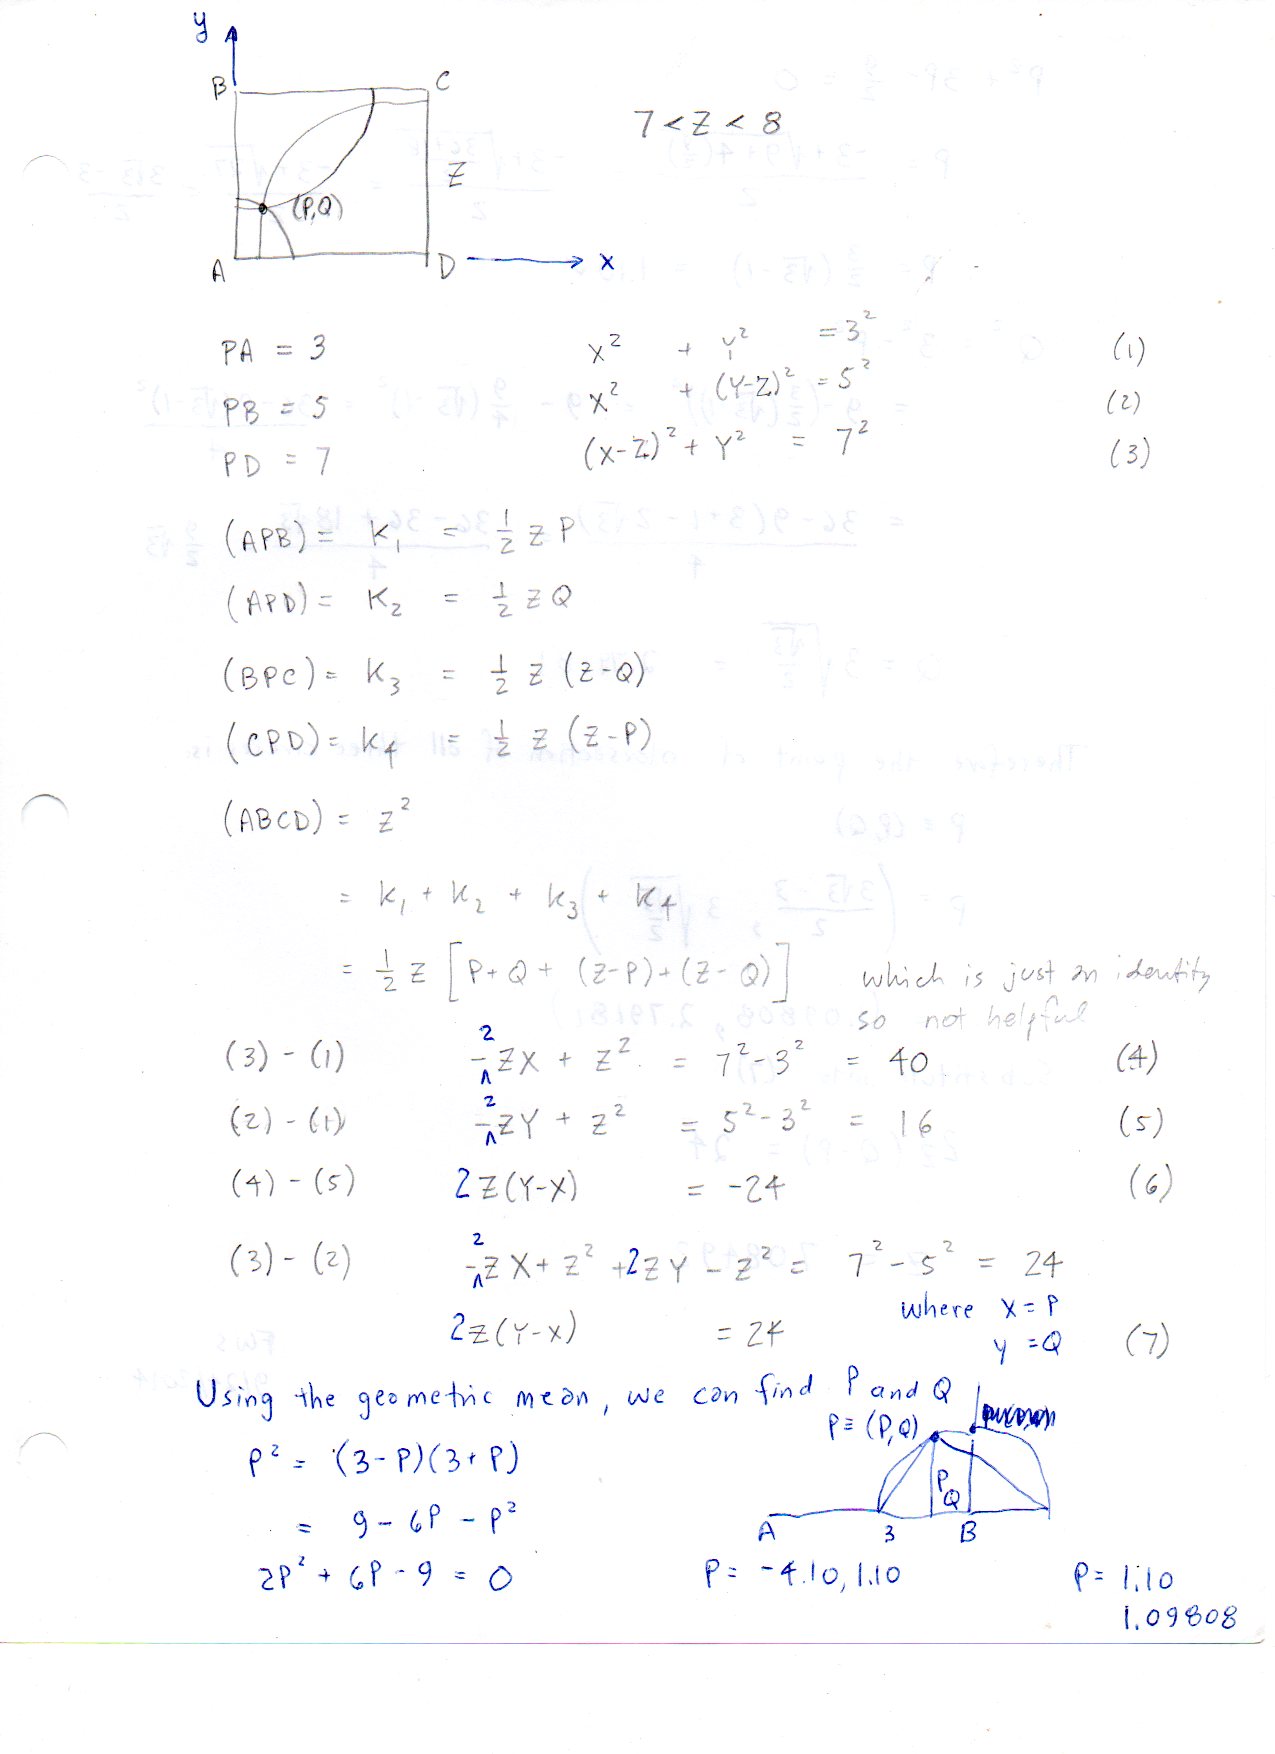 y
B C
7 < Z < 8
Z
(P,Q)
A D x
PA = 3 x² + y² = 3² (1)
PB = 5 x² + (Y-Z)² = 5² (2)
PD = 7 (x-Z)² + Y² = 7² (3)
(APB) = K₁ = ½ Z P
(APD) = K₂ = ½ Z Q
(BPC) = K₃ = ½ Z (Z-Q)
(CPD) = K₄ = ½ Z (Z-P)
(ABCD) = Z²
= K₁ + K₂ + K₃ + K₄
= ½ Z [P + Q + (Z-P) + (Z-Q)] which is just an identity
so not helpful
(3) - (1) -2ZX + Z² = 7² - 3² = 40 (4)
(2) - (1) -2ZY + Z² = 5² - 3² = 16 (5)
(4) - (5) 2Z(Y-X) = -24 (6)
(3) - (2) -2ZX + Z² + 2ZY - Z² = 7² - 5² = 24
where x = P
2Z(Y-X) = 24 y = Q (7)
Using the geometric mean, we can find P and Q
P ≡ (P,Q)
P² = (3-P)(3+P)
P Q
= 9 - 6P - P²
A 3 B
2P² + 6P - 9 = 0 P = -4.10, 1.10 P = 1.10
1.09808